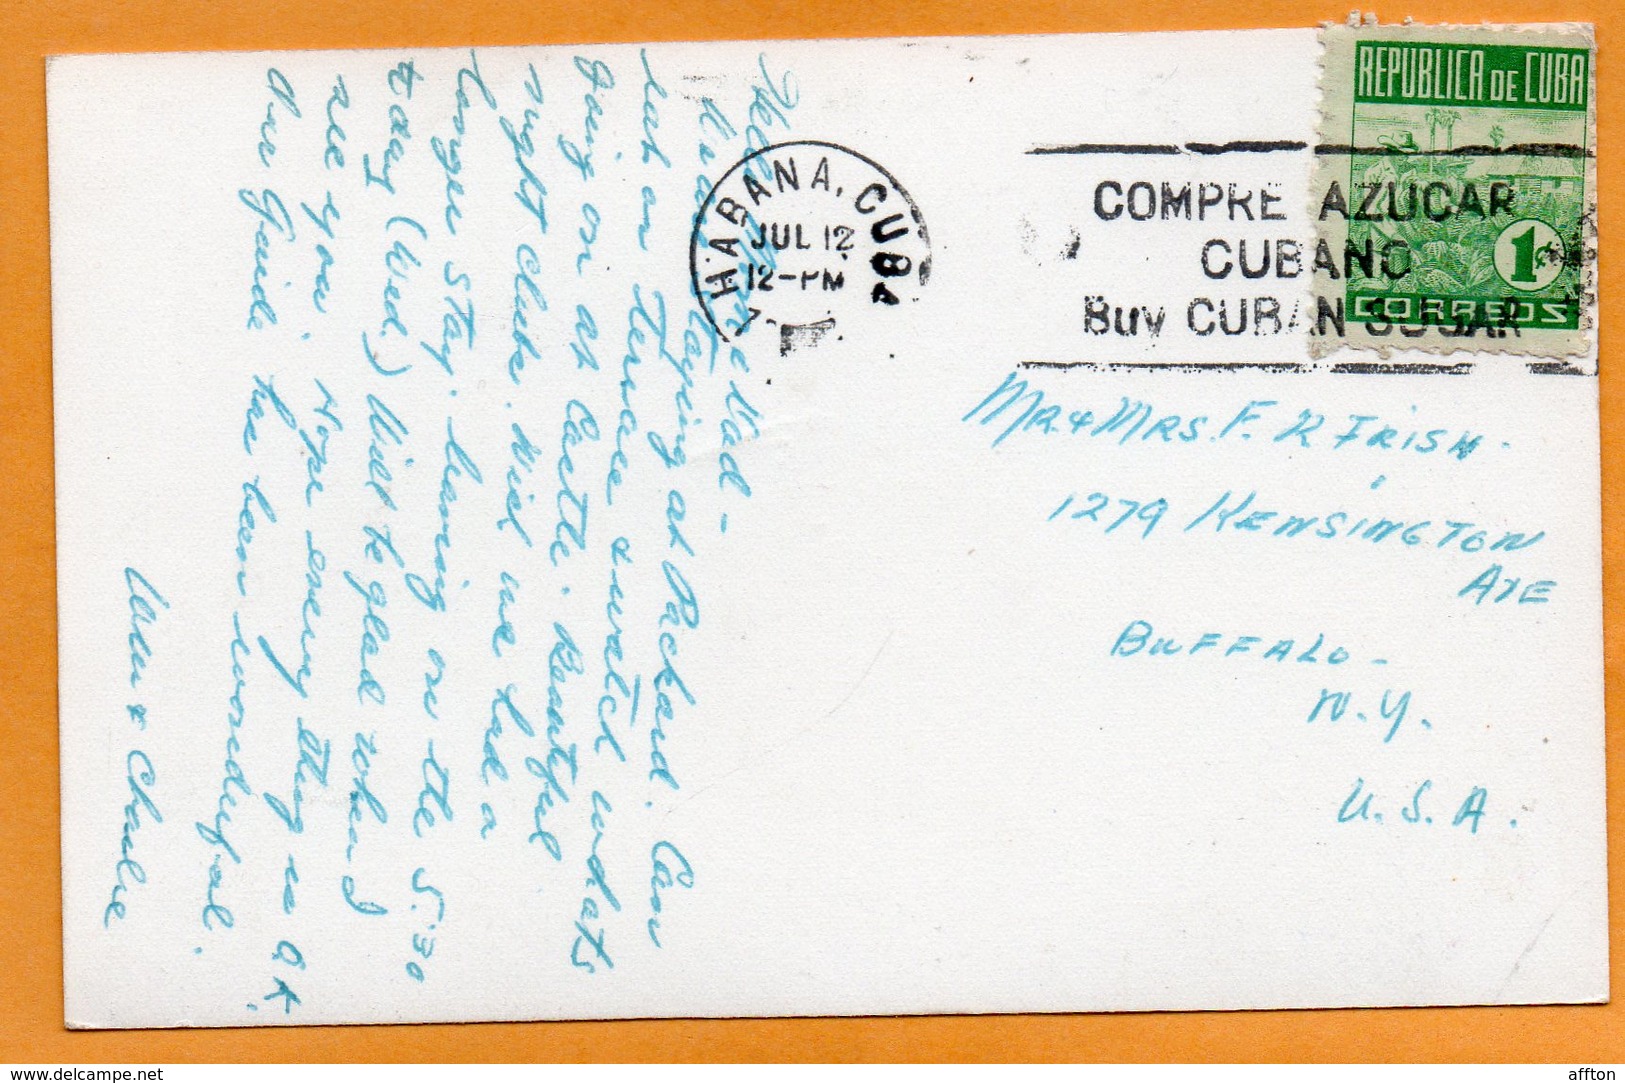 Hello
Staying at Packard. Can
eat on Terrace & watch whats
going on at Castle. Beautiful
night clubs. Wish we had a
longer stay. leaving on the 5:30
today (Wed.) Will be glad when I
see you. Hope every thing is O.K.
Our Guide has been wonderful.
& Charlie
HABANA, CUBA
JUL 12
12-PM
COMPRE AZUCAR
CUBANO
Buy CUBAN SUGAR
REPUBLICA DE CUBA
1¢
CORREOS
MR & MRS. F. K IRISH.
1279 KENSINGTON
AVE
BUFFALO-
N.Y.
U.S.A.
www.delcampe.net
affton